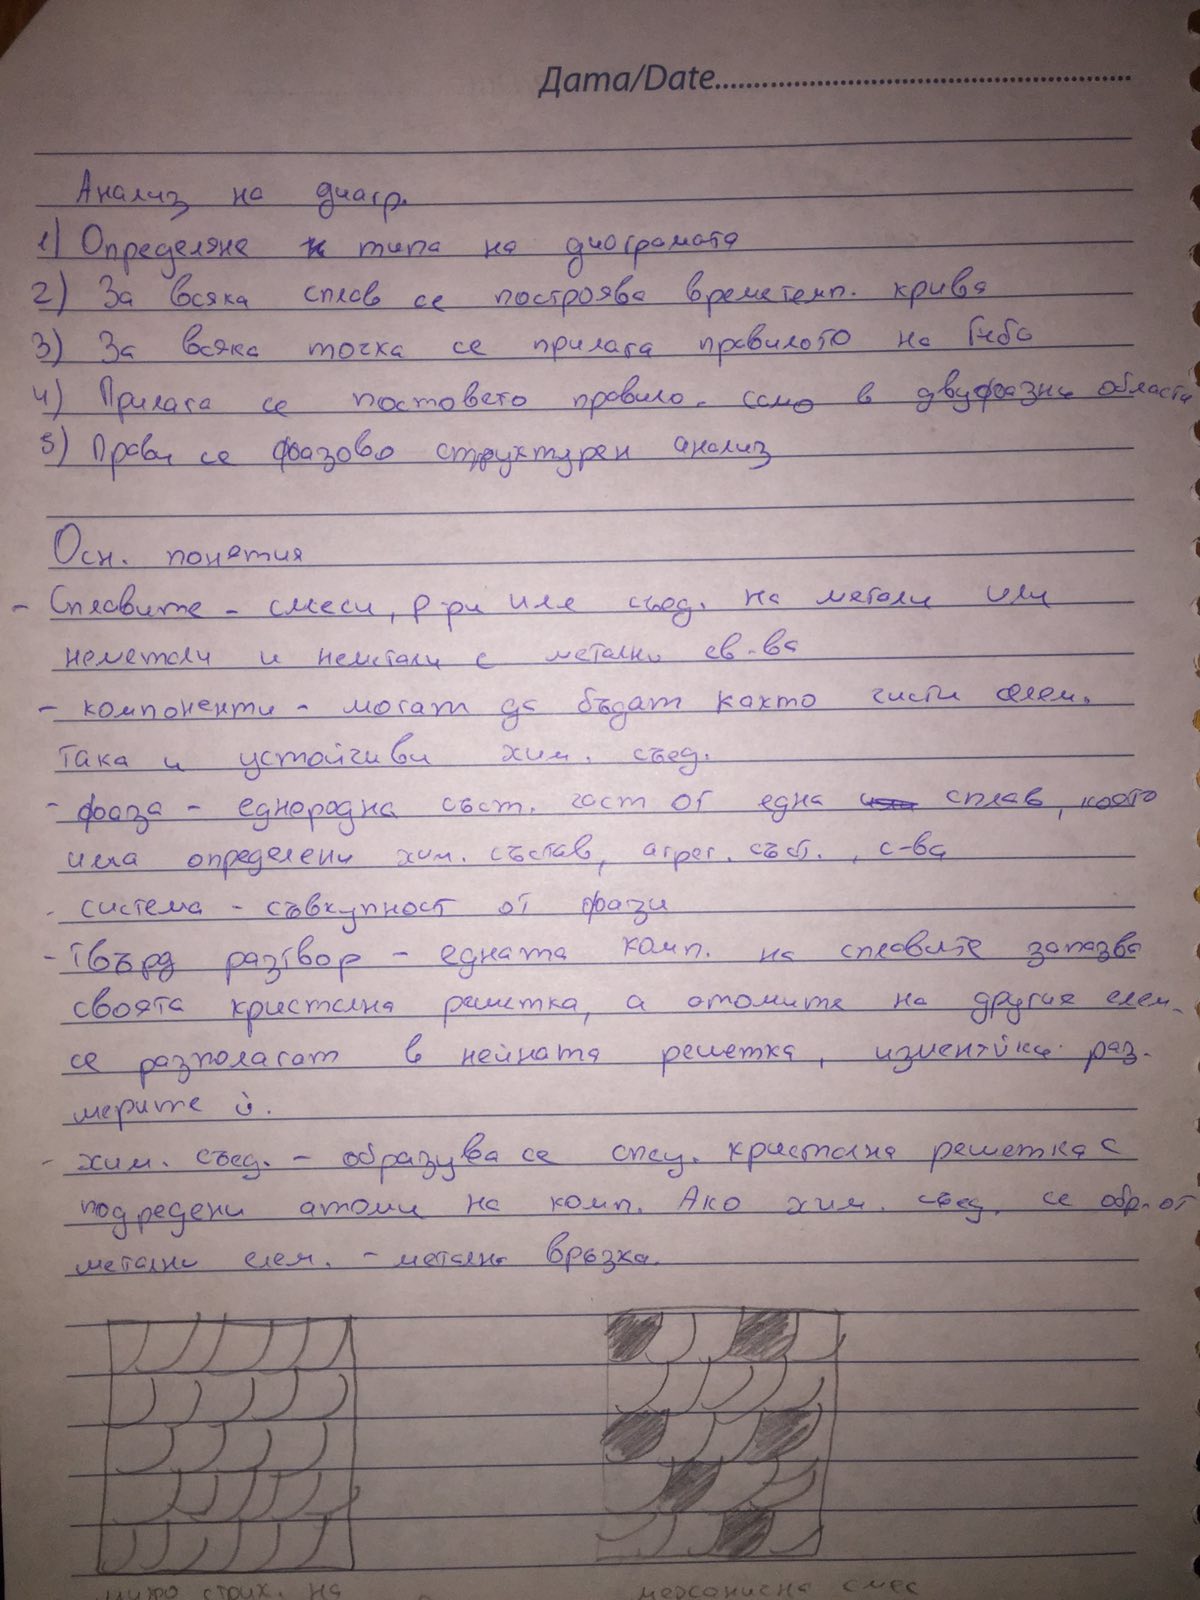 Дата/Date
Анализ на диагр.
1) Определяне типа на диаграмата
2) За всяка сплав се построява времетемп. крива
3) За всяка точка се прилага правилото на Гибс
4) Прилага се лостовето правило. само в двуфазни области
5) Прави се фазово структурен анализ
Осн. понятия
- Сплавите - смеси, р-ри или съед. на метали или
неметали и неметали с метални св-ва
- компоненти - могат да бъдат както чисти елем.
така и устойчиви хим. съед.
- фаза - еднородна съст. част от една сплав, която
има определени хим. състав, агрег. съст., с-ва
- система - съвкупност от фази
- твърд разтвор - едната комп. на сплавите запазва
своята кристална решетка, а атомите на другия елем.
се разполагат в нейната решетка, изменяйки раз-
мерите ѝ.
- хим. съед. - образува се спец. кристална решетка с
подредени атоми на комп. Ако хим. съед. се обр. от
метални елем. - метална връзка.
микро струк. на
механична смес